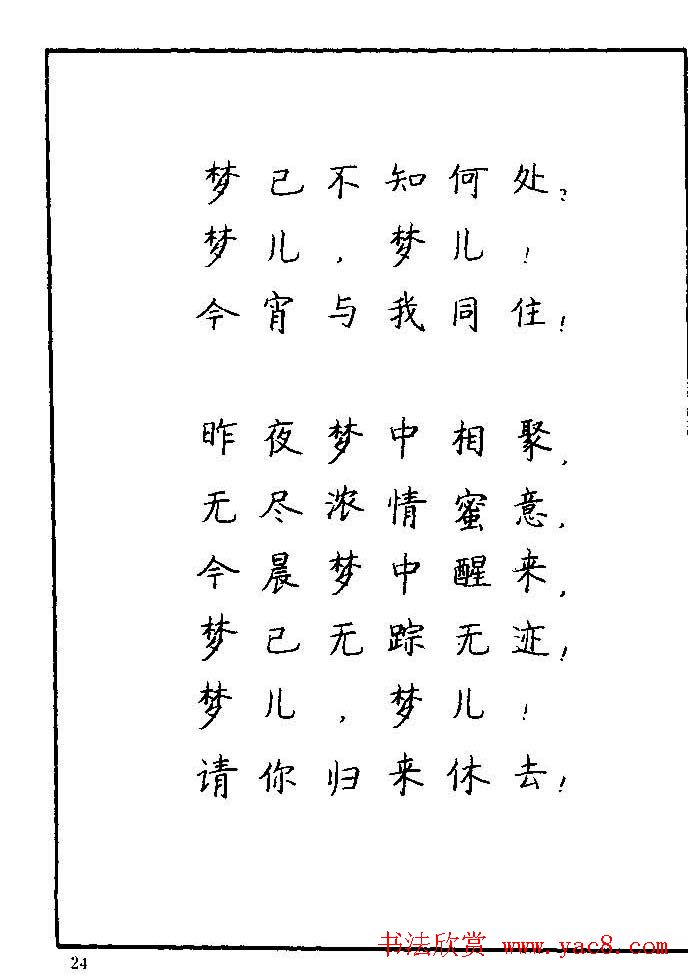 梦已不知何处?
梦儿,梦儿!
今宵与我同住!
昨夜梦中相聚,
无尽浓情蜜意,
今晨梦中醒来,
梦已无踪无迹!
梦儿,梦儿!
请你归来休去!
24
书法欣赏 www.yac8.com